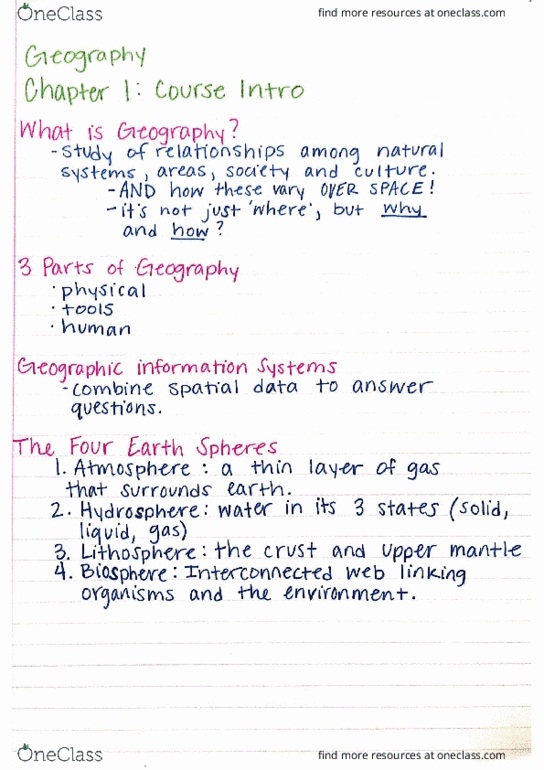 OneClass
find more resources at oneclass.com
Geography
Chapter 1: Course Intro
What is Geography?
-study of relationships among natural
systems, areas, society and culture.
-AND how these vary OVER SPACE!
-it's not just 'where', but why
and how?
3 Parts of Geography
· physical
· tools
· human
Geographic information Systems
-combine spatial data to answer
questions.
The Four Earth Spheres
1. Atmosphere : a thin layer of gas
that surrounds earth.
2. Hydrosphere: water in its 3 states (solid,
liquid, gas)
3. Lithosphere: the crust and upper mantle
4. Biosphere: Interconnected web linking
organisms and the environment.
OneClass
find more resources at oneclass.com